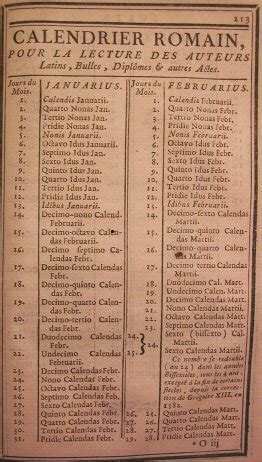 213
CALENDRIER ROMAIN,
POUR LA LECTURE DES AUTEURS
Latins, Bulles, Diplômes & autres Actes.
Jours du
Mois.
JANUARIUS.
1. Calendis Januarii.
2. Quarto Nonas Jan.
3. Tertio Nonas Jan.
4. Pridie Nonas Jan.
5. Nonis Januarii.
6. Octavo Idus Jan.
7. Septimo Idus Jan.
8. Sexto Idus Jan.
9. Quinto Idus Jan.
10. Quarto Idus Jan.
11. Tertio Idus Jan.
12. Pridie Idus Jan.
13. Idibus Januarii.
14. Decimo-nono Calend.
Februarii.
15. Decimo-octavo Calen-
das Februarii.
16. Decimo septimo Ca-
lendas Febr.
17. Decimo-sexto Calendas
Febr.
18. Decimo-quinto Calen-
das Febr.
19. Decimo-quarto Calen-
das Febr.
20. Decimo-tertio Calen-
das Febr.
21. Duodecimo Calendas
Febr.
22. Undecimo Calendas
Febr.
23. Decimo Calendas Febr.
24. Nono Calendas Febr.
25. Octavo Calendas Febr.
26. Septimo Calendas Feb.
27. Sexto Calendas Febr.
28. Quinto Calendas Febr.
29. Quarto Calendas Febr.
30. Tertio Calendas Febr.
31. Pridie Calendas Febr.
Jours du
Mois.
FEBRUARIUS.
1. Calendis Februarii.
2. Quarto Nonas Febr.
3. Tertio Nonas Febr.
4. Pridie Nonas Febr.
5. Nonis Februarii.
6. Octavo Idus Febr.
7. Septimo Idus Febr.
8. Sexto Idus Febr.
9. Quinto Idus Febr.
10. Quarto Idus Febr.
11. Tertio Idus Febr.
12. Pridie Idus Febr.
13. Idibus Februarii.
14. Decimo-sexto Calendas
Martii.
15. Decimo-quinto Calen-
das Martii.
16. Decimo-quarto Calen-
das Martii.
17. Decimo tertio Calendas
Martii.
18. Duodecimo Cal. Mart.
19. Undecimo Calen. Mart.
20. Decimo Calendas Mart.
21. Nono Calendas Martii.
22. Octavo Calendas Mart.
23. Septimo Calendas Mart.
24. Sexto (bissexto) Cal.
Martii.
24. Sexto Calendas Martii.
Ce nombre se redouble
(au 24) dans les années
Bissextiles, tous les 4 ans,
excepté à la fin de certains
siecles, depuis la correc-
tion de Grégoire XIII. en
1582.
26. Quinto Calendas Mart.
27. Quarto Calendas Mart.
28. Tertio Calendas Mart.
29. 28. Pridie Calendas Mart.
O iij